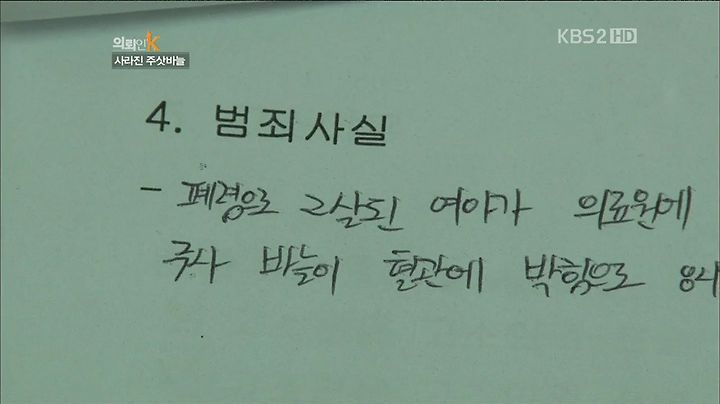 의뢰인K
사라진 주삿바늘
KBS2 HD
4. 범죄사실
- 폐렴으로 2살된 여아가 의료원에
주사 바늘이 혈관에 박힘으로